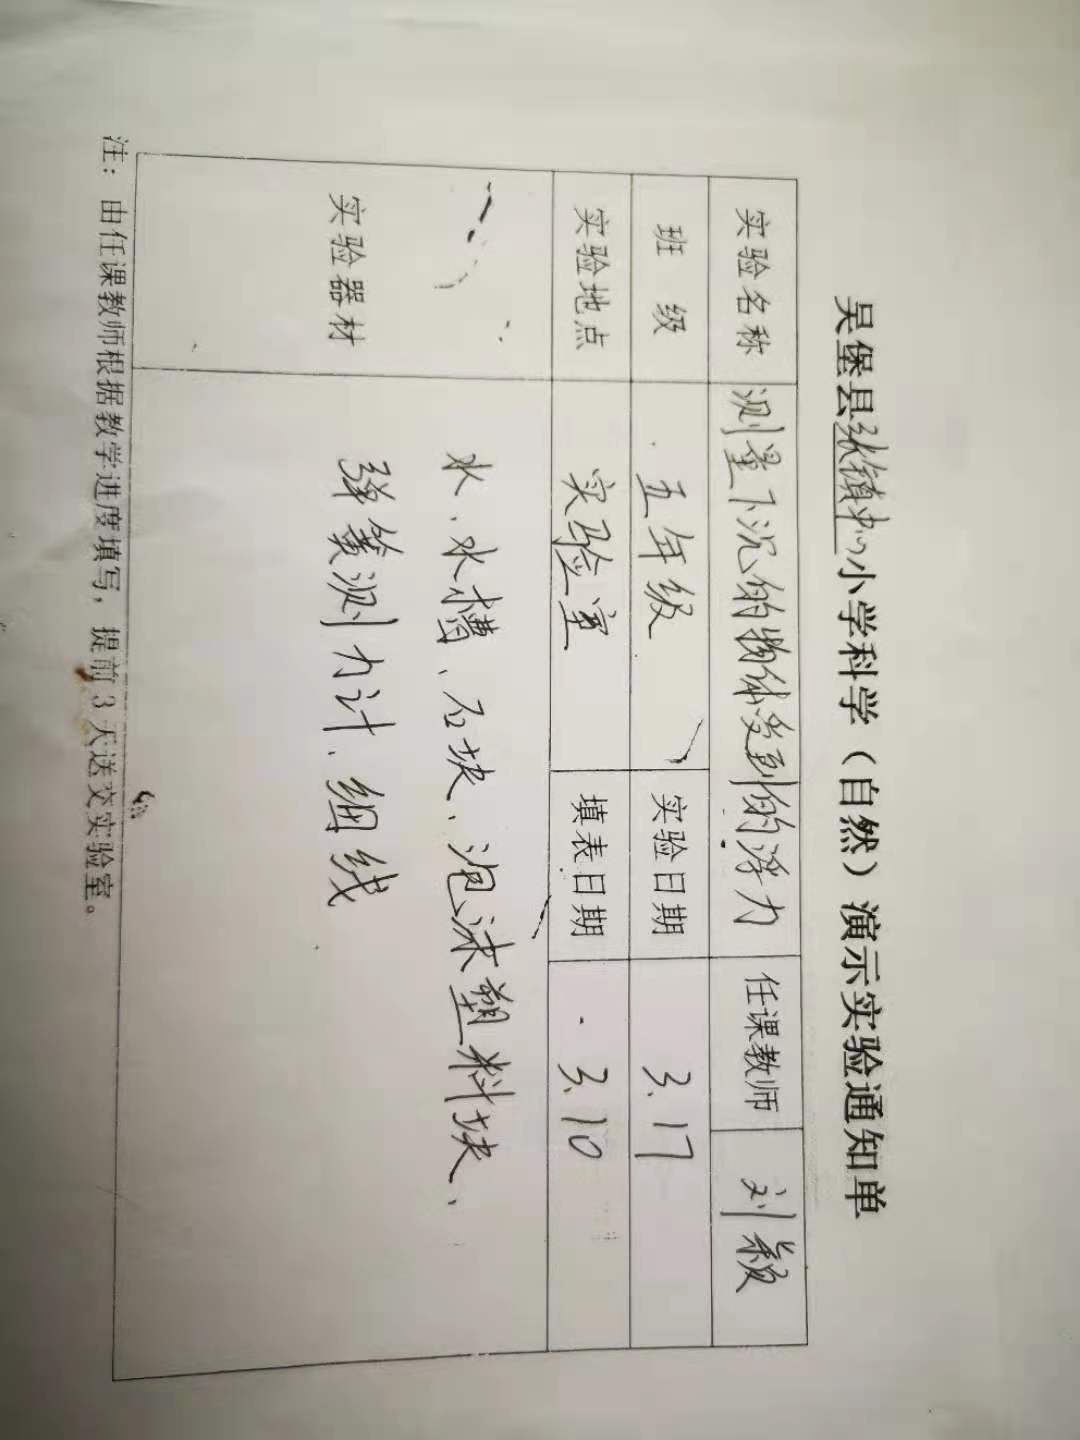 吴堡县张镇中心小学科学（自然）演示实验通知单
实验名称 测量下沉的物体受到的浮力 任课教师 刘颖
班 级 五年级 实验日期 3.17
实验地点 实验室 填表日期 3.10
实验器材
水、水槽、石块、泡沫塑料块、
弹簧测力计、细线
注：由任课教师根据教学进度填写，提前3天送交实验室。